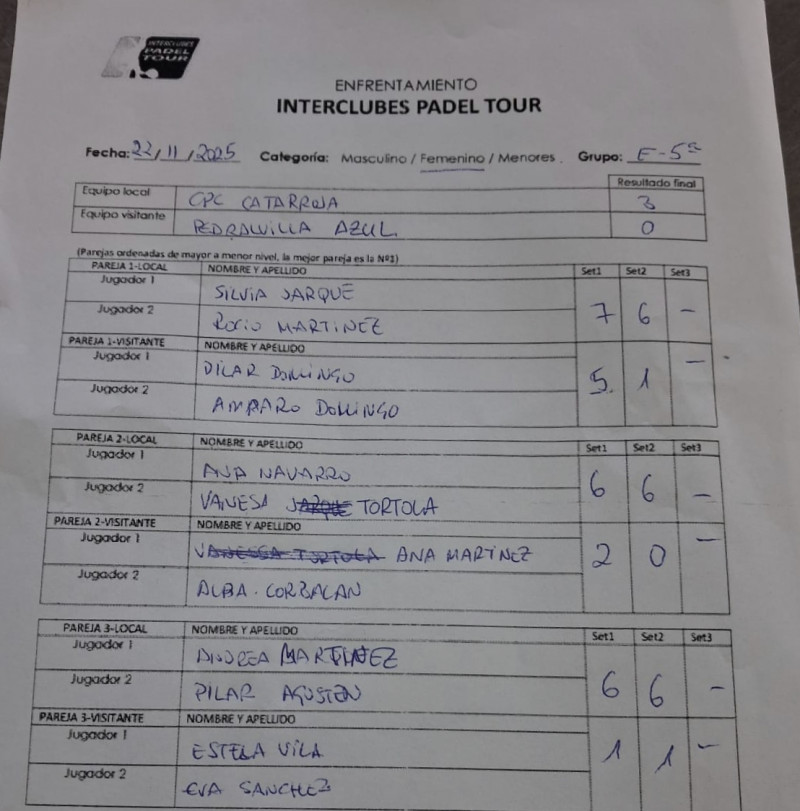 INTERCLUBES
PADEL
TOUR
ENFRENTAMIENTO
INTERCLUBES PADEL TOUR
Fecha: 22/11/2025 Categoría: Masculino / Femenino / Menores Grupo: E-5ª
Resultado final
Equipo local CPC CATARROJA 3
Equipo visitante PEDRALVILLA AZUL. 0
(Parejas ordenadas de mayor a menor nivel, la mejor pareja es la Nº1)
PAREJA 1-LOCAL NOMBRE Y APELLIDO Set1 Set2 Set3
Jugador 1 SILVIA JARQUE
Jugador 2 ROCIO MARTINEZ 7 6 -
PAREJA 1-VISITANTE NOMBRE Y APELLIDO
Jugador 1 PILAR DOMINGO
Jugador 2 AMPARO DOMINGO 5 1 -
PAREJA 2-LOCAL NOMBRE Y APELLIDO Set1 Set2 Set3
Jugador 1 ANA NAVARRO
Jugador 2 VANESA JARQUE TORTOLA 6 6 -
PAREJA 2-VISITANTE NOMBRE Y APELLIDO
Jugador 1 VANESSA TORTOLA ANA MARTINEZ
Jugador 2 ALBA CORBALAN 2 0 -
PAREJA 3-LOCAL NOMBRE Y APELLIDO Set1 Set2 Set3
Jugador 1 ANDREA MARTINEZ
Jugador 2 PILAR AGUSTEN 6 6 -
PAREJA 3-VISITANTE NOMBRE Y APELLIDO
Jugador 1 ESTELA VILA 1 1 -
Jugador 2 EVA SANCHEZ